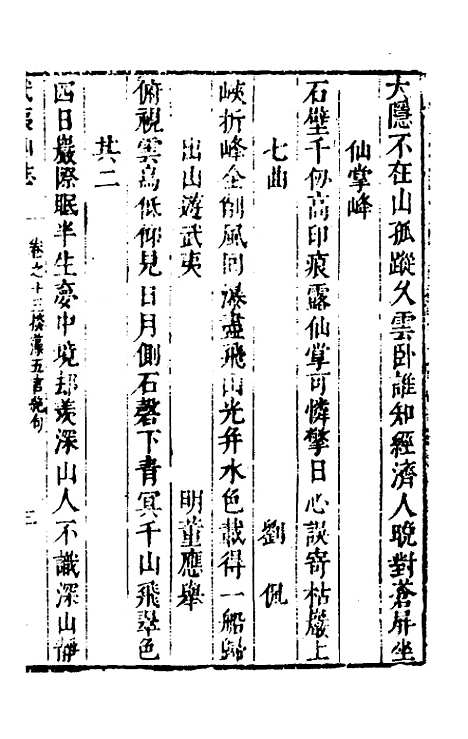 大隱不在山孤蹤久雲卧誰知經濟人晚對蒼屏坐
仙掌峰
石壁千仞高印痕露仙掌可憐擎日心誤寄枯巖上
七曲 劉佩
峽折峰全削風回瀑盡飛山光弁水色載得一船歸
出山遊武夷 明董應舉
俯視雲鳥低仰見日月側石磬下青冥千山飛翠色
其二
四日巖際眠半生夢中境却羨深山人不識深山靜
武夷山志 卷之十三 五言絶句 三